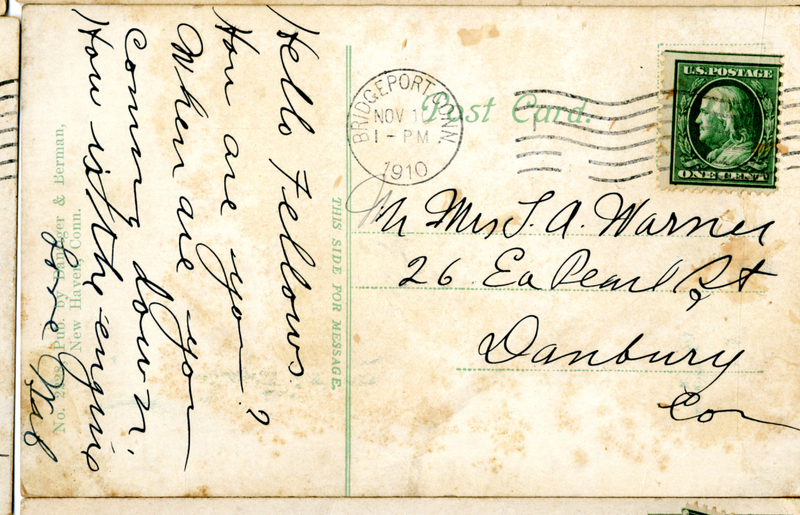 Hello Fellows.
How are you?
When are you
coming down.
How is the engine
Post Card.
THIS SIDE FOR MESSAGE.
New Haven, Conn.
BRIDGEPORT, CONN.
NOV 1
1 - PM
1910
U.S. POSTAGE
ONE CENT
Mr Mrs A. Warner
26 Ea Pearl St
Danbury
Con